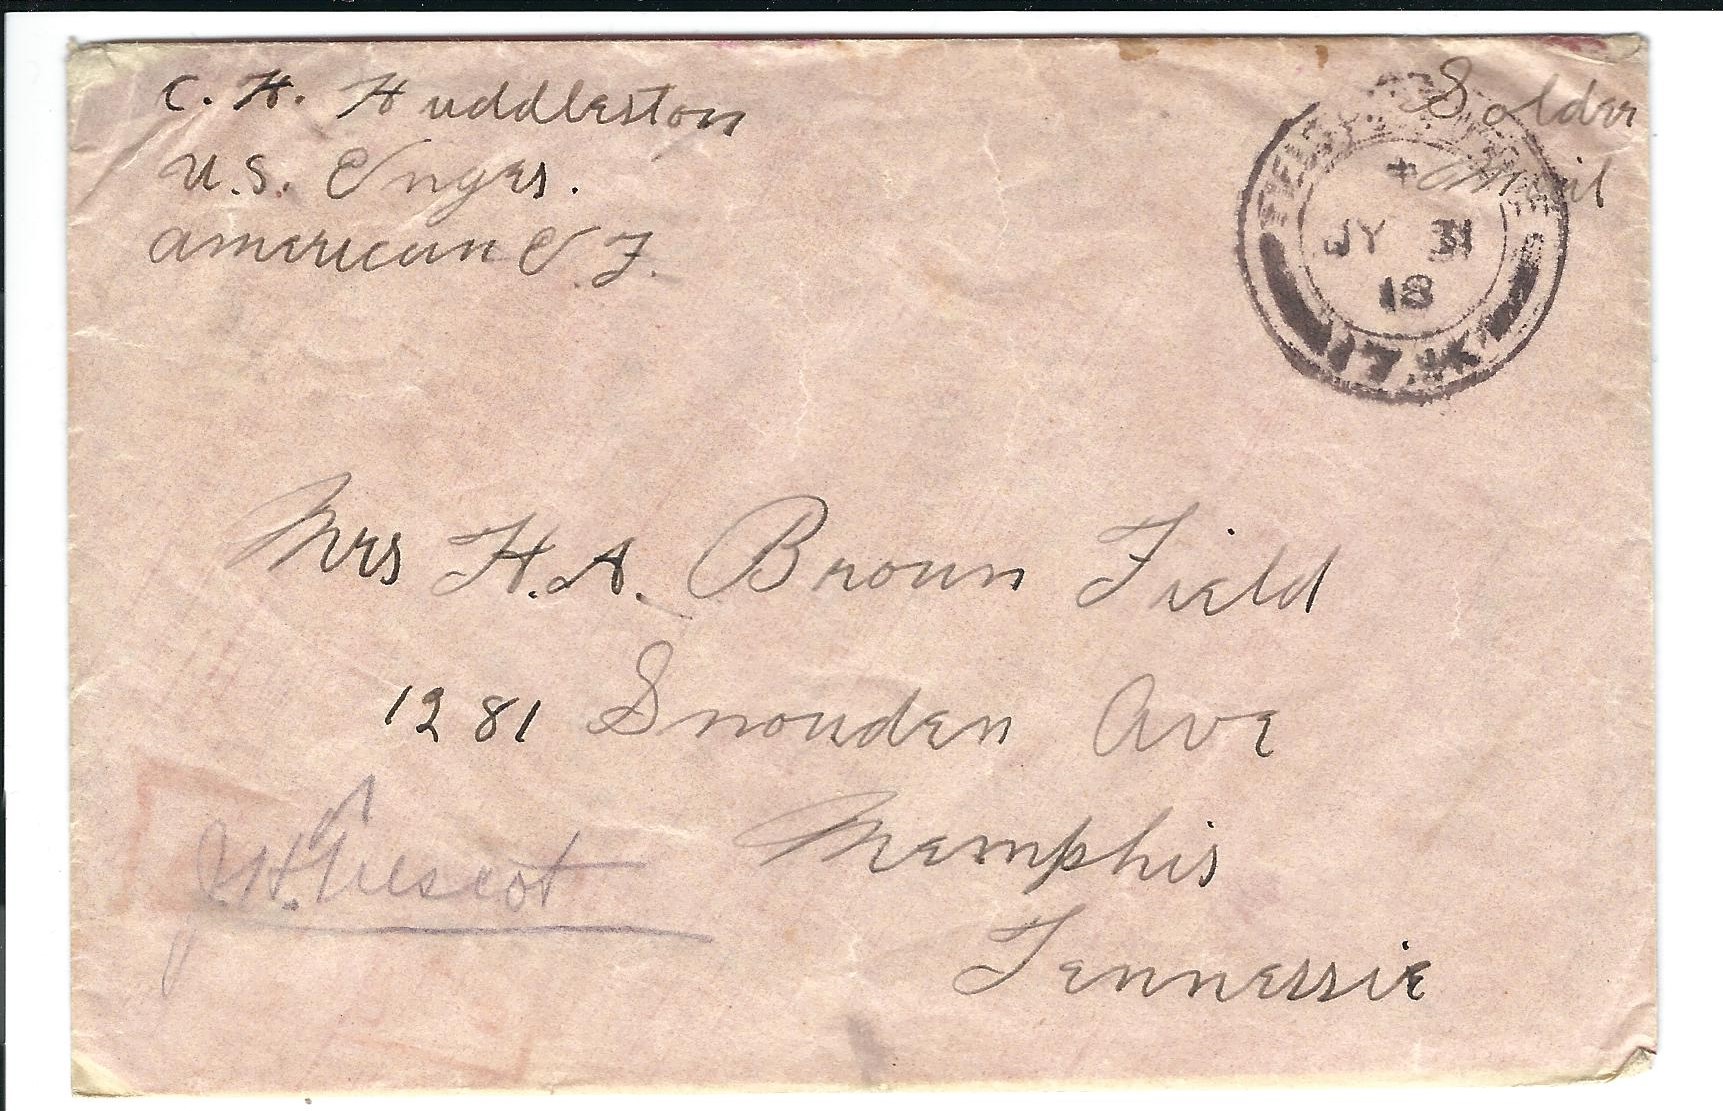 C. H. Huddleston
U.S. Engrs.
American E. F.
Solder
Mail
FIELD POST OFFICE
JY 31
18
Mrs H. A. Brown Field
1281 Snowden Ave
Memphis
Tennessie
J. H. Prescot